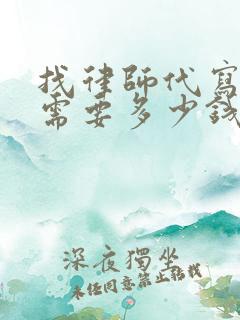 找律師代寫
需要多少錢
深夜獨坐
未经同意禁止转载